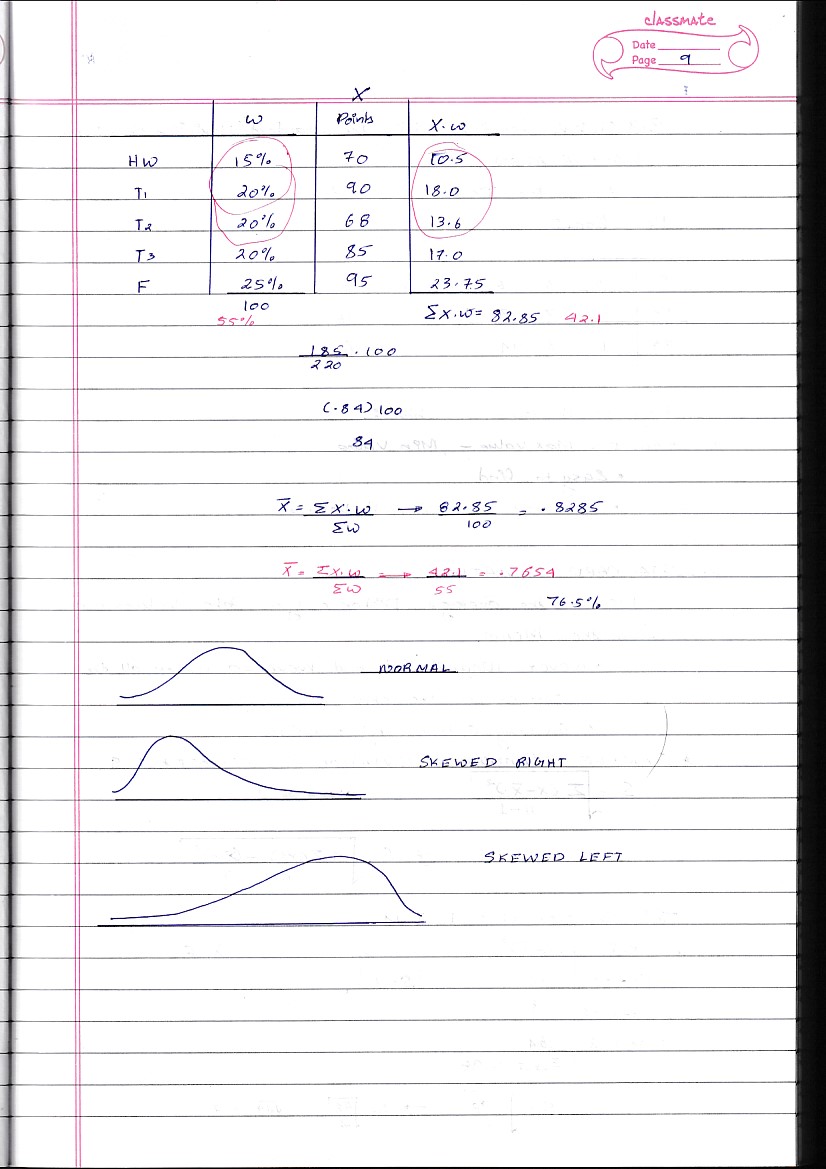 classmate
Date
Page 9
X
W Points X.w
HW 15% 70 10.5
T1 20% 90 18.0
T2 20% 68 13.6
T3 20% 85 17.0
F 25% 95 23.75
100 Σx.w = 82.85 42.1
55%
185/220 . 100
(.84) 100
84
X̄ = Σx.w/Σw → 82.85/100 = .8285
X̄ = Σx.w/Σw = → 42.1/55 = .7654
76.5%
NORMAL
SKEWED RIGHT
SKEWED LEFT